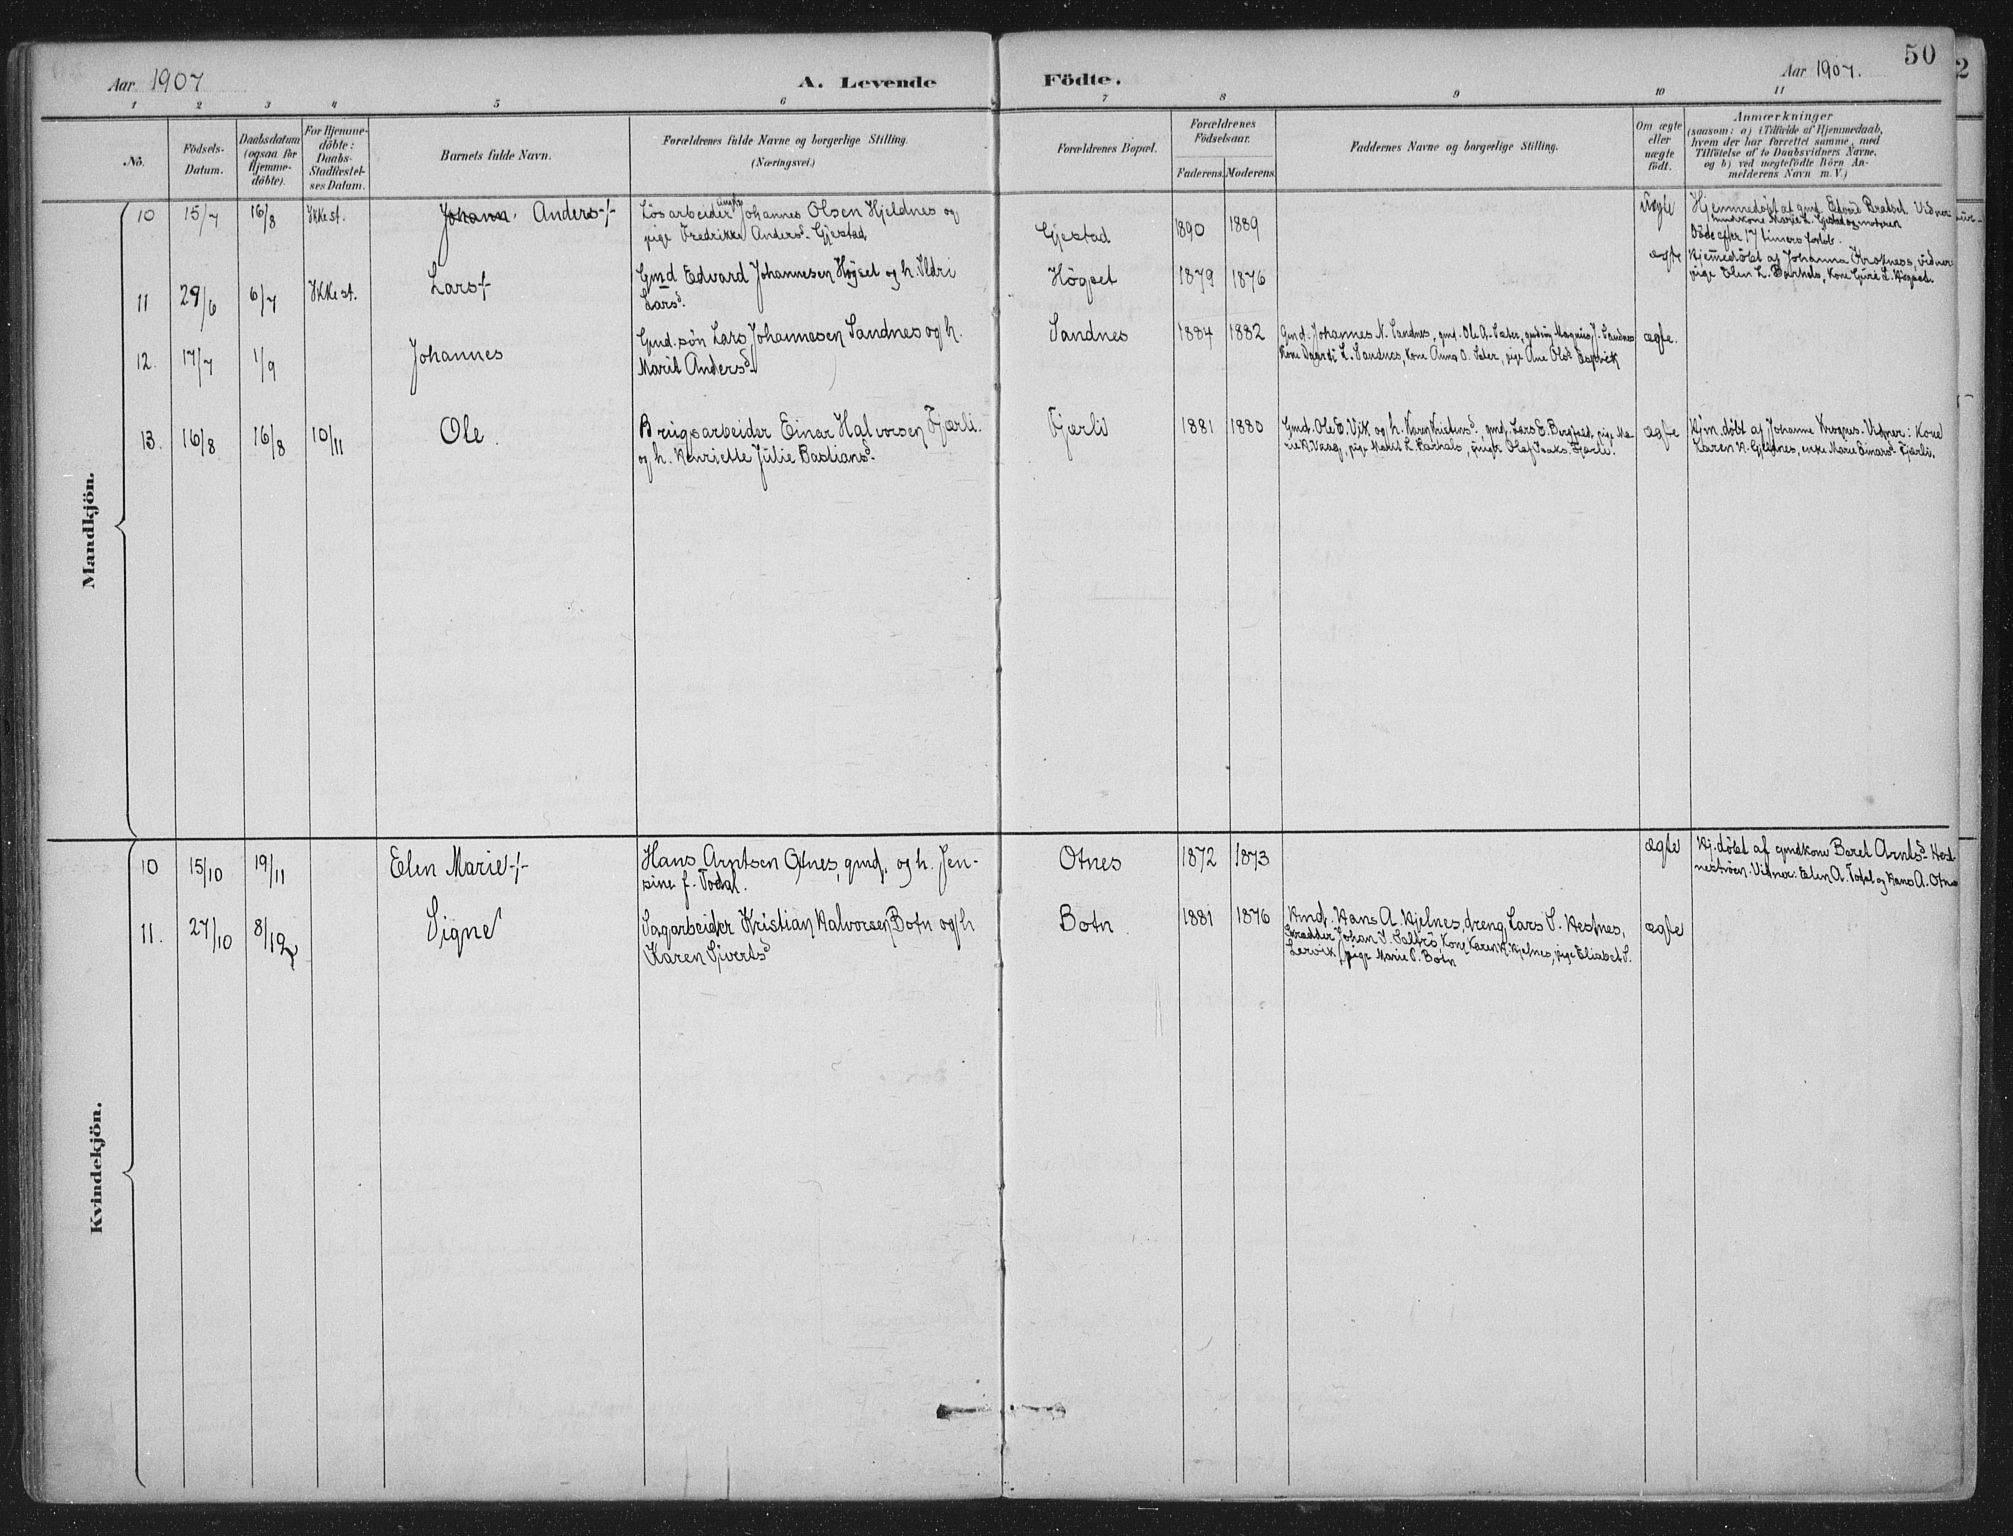 50
2
Aar 1907
A. Levende
Födte.
Aar 1907.
1 2 3 4 5 6 7 8 9 10 11
No.
Födsels-
Datum.
Daabsdatum
(ogsaa for
Hjemme-
döbte).
For Hjemme-
döbte:
Daabs-
Stadfæstel-
ses Datum.
Barnets fulde Navn.
Forældrenes fulde Navne og borgerlige Stilling.
(Næringsvei.)
Forældrenes Bopæl.
Forældrenes
Födselsaar.
Faderens. Moderens.
Faddernes Navne og borgerlige Stilling.
Om ægte
eller
uægte
födt.
Anmærkninger
(saasom: a) i Tilfælde af Hjemmedaab,
hvem der har forrettet samme, med
Tilföielse af to Daabsvidners Navne,
og b) ved uegtefödte Börn An-
melderens Navn m. V.)
Mandkjön.
10 15/7 16/8 Ikke st. Johann. Anders -/-
Lösarbeider ungkar Johannes Olsen Hjeldnes og
pige Fredrikke Andersd. Gjestad
Gjestad 1890 1889
Uægte
Hjemmedöbt af gmd. Edvard Bratset. Vidner:
gmdkone Marie L. Gjestad og moderen
Döde efter 17 timers forlöb.
11 29/6 6/7 Ikke st. Lars -/-
Gmd Edvard Johannesen Högset og h. Ildri
Larsd.
Högset 1879 1876
ægte
Hjemmedöbt af Johanna Kroknes, vidner:
pige Elen L. Barhals, kone Guri L. Högset.
12. 17/7 1/9 Johannes
Gmd. sön Lars Johannesen Sandnes og h.
Marit Andersd.
Sandnes 1884 1882
Gmd. Johannes N. Sandnes, gmd. Ole A. Sæter, gmdsön Magnus J. Sandnes
Kone L. Sandnes, kone Anna O. Sæter, pige Ane Olsd. Espvik
ægte.
13. 16/8 16/8 10/11 Ole.
Brugsarbeider Einar Halvorsen Fjærli.
og h. Henriette Julie Bastiansd.
Fjærli 1881 1880
Gmd. Ole E. Vik og h. Karen Kristensd. gmd. Lars E. Bergfald, pige Ma-
rie K. Vaag, pige Marit L. Barhals, ungkr Olaf Isaks. Fjærli.
ægte
Hjem.döbt af Johanne Krognes. Vidner: Kone
Karen K. Gjeldnes, enke Marie Einarsd. Fjærli.
Kvindekjön.
10 15/10 19/11 Elen Marie -/-
Hans Arntsen Otnes, gmd. og h. Jen-
sine f. Todal.
Otnes 1872 1873
ægte
Hj.döbt af gmdkone Beret Arntsd. Hest-
neströen. Vidner: Elen A. Todal og Hans A. Otnes
11. 27/10 8/12 Signe
Sagarbeider Kristian Halvorsen Botn og h
Karen Sjvertsd
Botn 1881 1876
Kmd. Hans A. Hjelnes, dreng Lars S. Hestnes,
Skrædder Johan I. Saltrö, Kone Karen K. Hjelnes, pige Elisabet S.
Lervik, pige Marie P. Botn
ægte